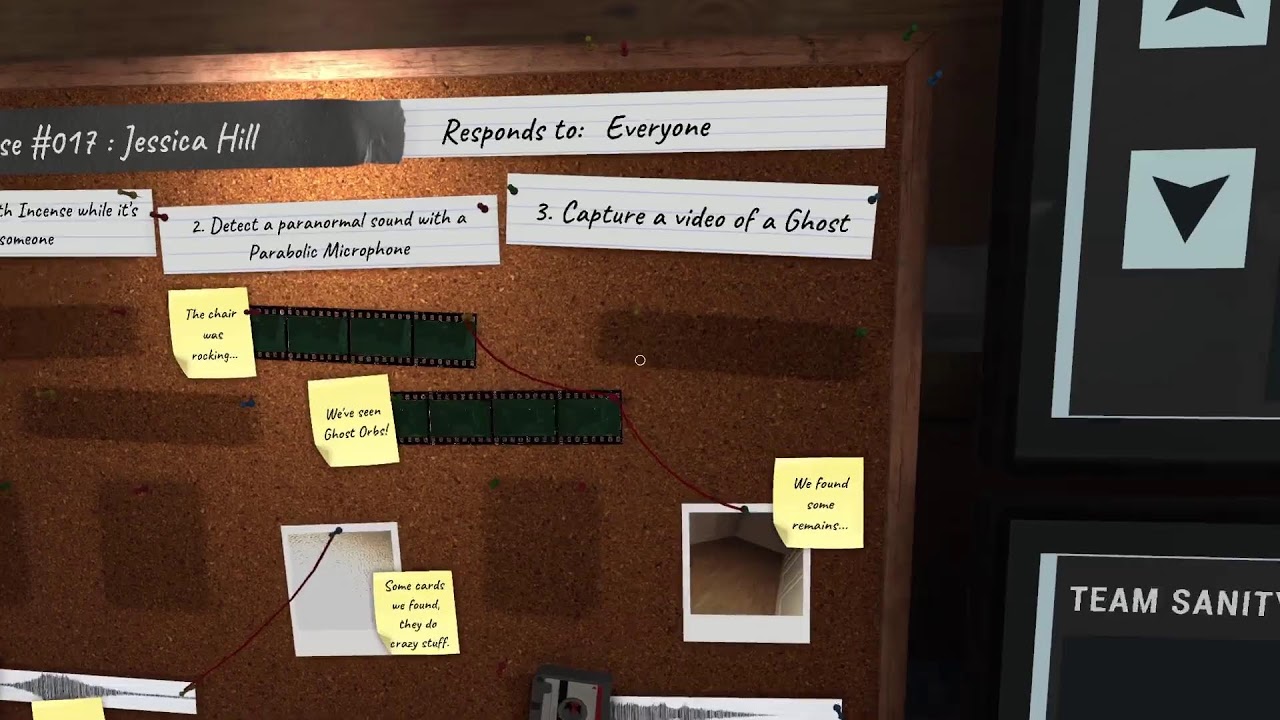 se #017 : Jessica Hill
Responds to: Everyone
th Incense while it's
someone
2. Detect a paranormal sound with a
Parabolic Microphone
3. Capture a video of a Ghost
The chair
was
rocking...
We've seen
Ghost Orbs!
We found
some
remains...
Some cards
we found,
they do
crazy stuff.
TEAM SANITY